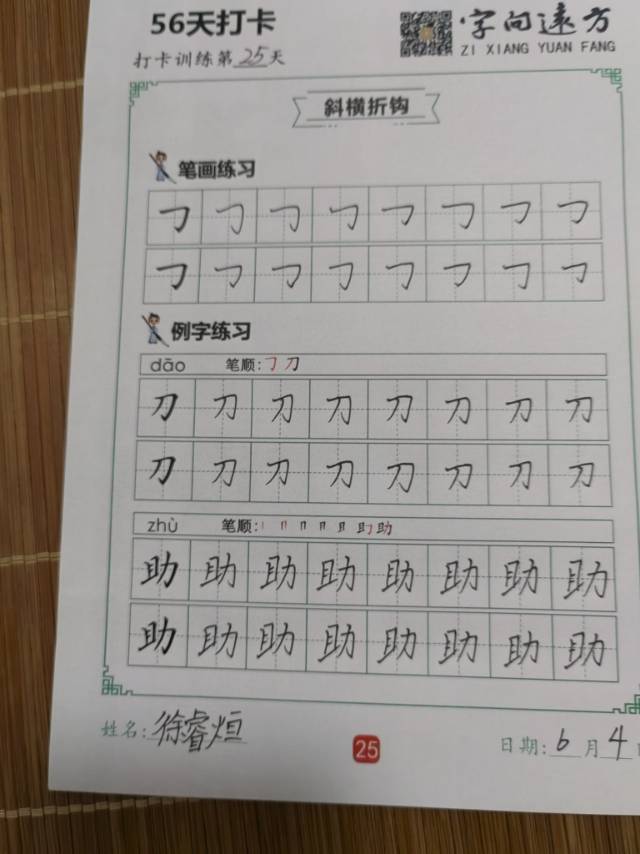 56天打卡
字向远方
ZI XIANG YUAN FANG
打卡训练第25天
斜横折钩
笔画练习
㇆ ㇆ ㇆ ㇆ ㇆ ㇆ ㇆ ㇆
㇆ ㇆ ㇆ ㇆ ㇆ ㇆ ㇆ ㇆
例字练习
dāo 笔顺:㇆刀
刀 刀 刀 刀 刀 刀 刀 刀
刀 刀 刀 刀 刀 刀 刀 刀
zhù 笔顺:
助 助 助 助 助 助 助 助
助 助 助 助 助 助 助 助
姓名:徐睿烜
25
日期:6月4日